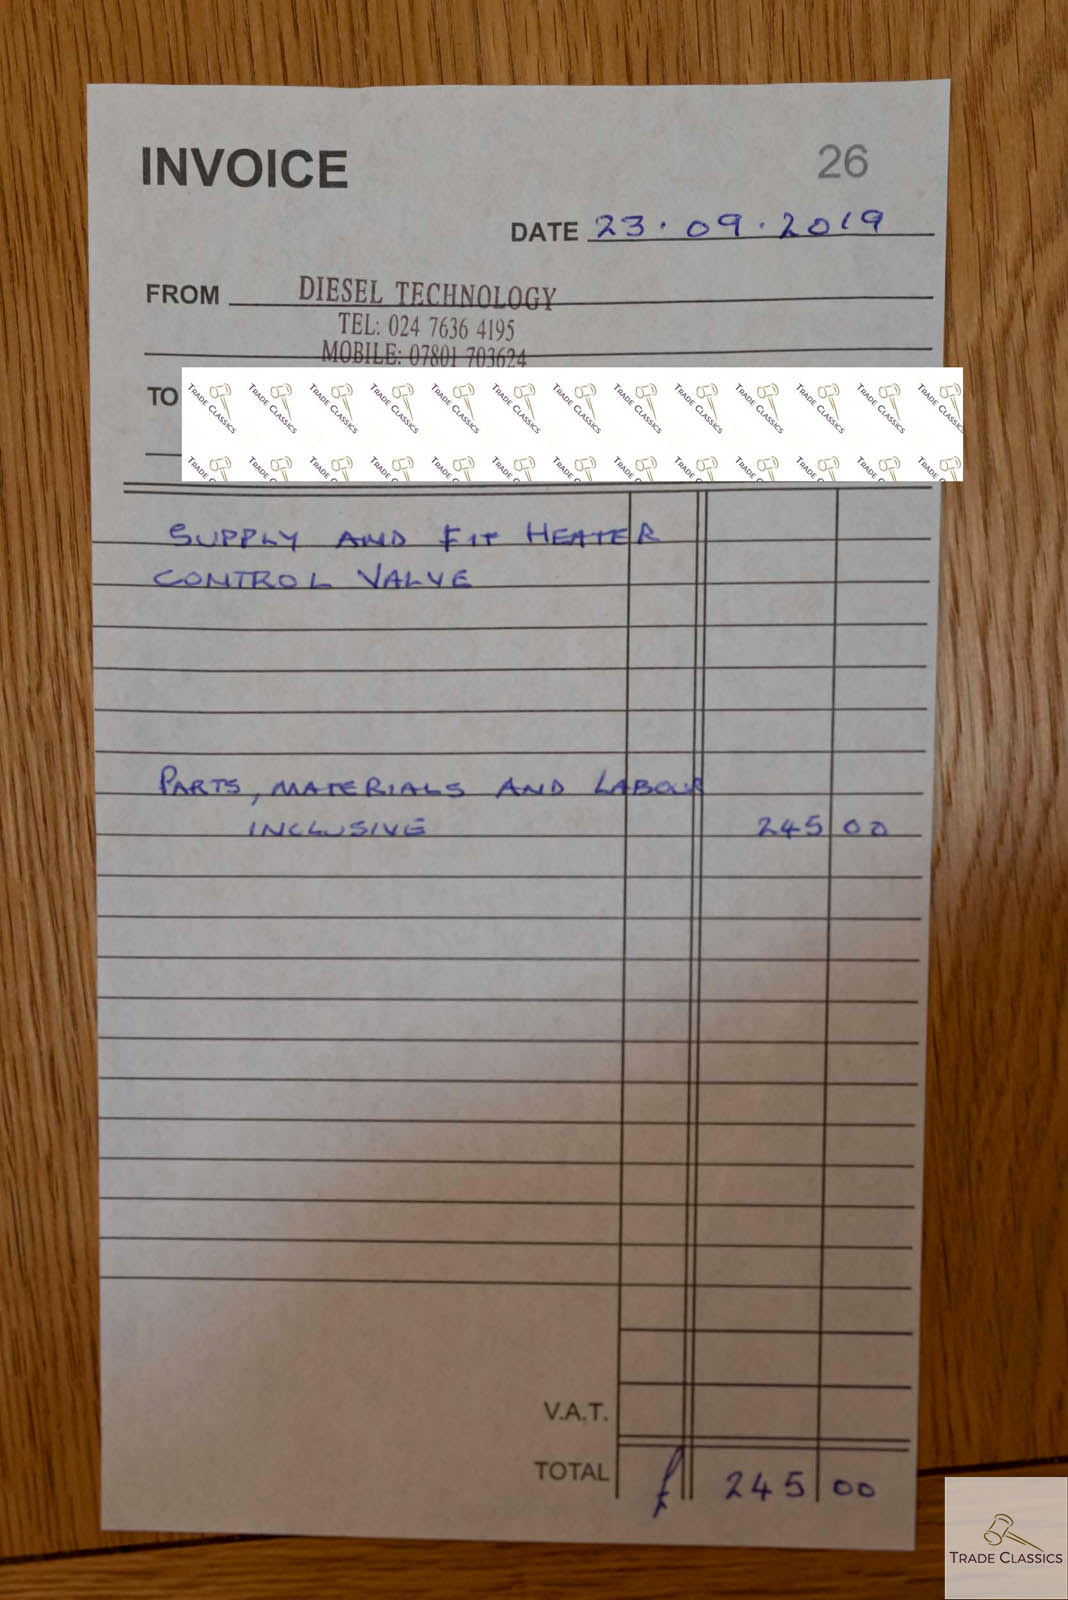 INVOICE
26
DATE 23.09.2019
FROM DIESEL TECHNOLOGY
TEL: 024 7636 4195
MOBILE: 07801 703624
TO
TRADE CLASSICS TRADE CLASSICS TRADE CLASSICS TRADE CLASSICS TRADE CLASSICS TRADE CLASSICS TRADE CLASSICS TRADE CLASSICS TRADE CLASSICS TRADE CLASSICS TRADE CLASSICS TRADE CLASSICS TRADE CLASSICS
TRADE C TRADE C TRADE C TRADE C TRADE C TRADE C TRADE C TRADE C TRADE C TRADE C TRADE C TRADE C TRADE C
SUPPLY AND FIT HEATER
CONTROL VALVE
PARTS, MATERIALS AND LABOUR
INCLUSIVE 245 00
V.A.T.
TOTAL £ 245 00
TRADE CLASSICS